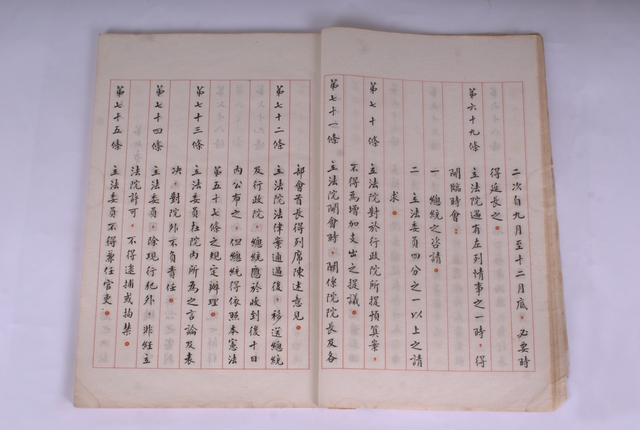 二次自九月至十二月底，必要時
得延長之。
第六十九條 立法院遇有左列情事之一時，得
開臨時會：
一，總統之咨請。
二 立法委員四分之一以上之請
求。
第七十條 立法院對於行政院所提預算案，
不得為增加支出之提議。
第七十一條 立法院開會時，關係院院長及各
部會首長得列席陳述意見。
第七十二條 立法院法律案通過後，移送總統
及行政院，總統應於收到後十日
內公布之，但總統得依照本憲法
第五十七條之規定辦理。
第七十三條 立法委員在院內所為之言論及表
決，對院外不負責任。
第七十四條 立法委員，除現行犯外，非經立
法院許可，不得逮捕或拘禁。
第七十五條 立法委員不得兼任官吏。